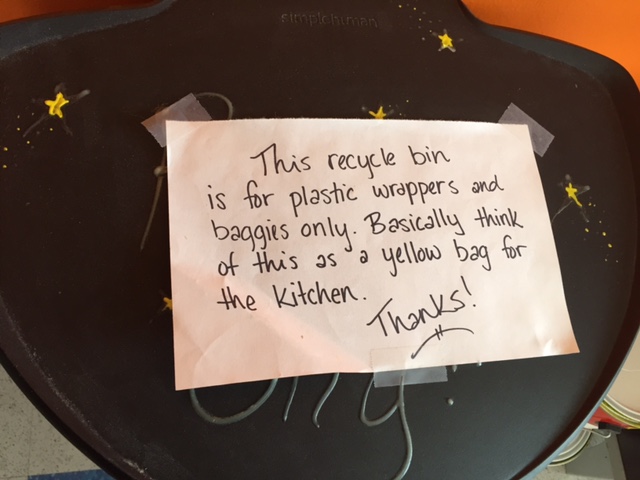 simplehuman
This recycle bin
is for plastic wrappers and
baggies only. Basically think
of this as a yellow bag for
the kitchen.
Thanks!